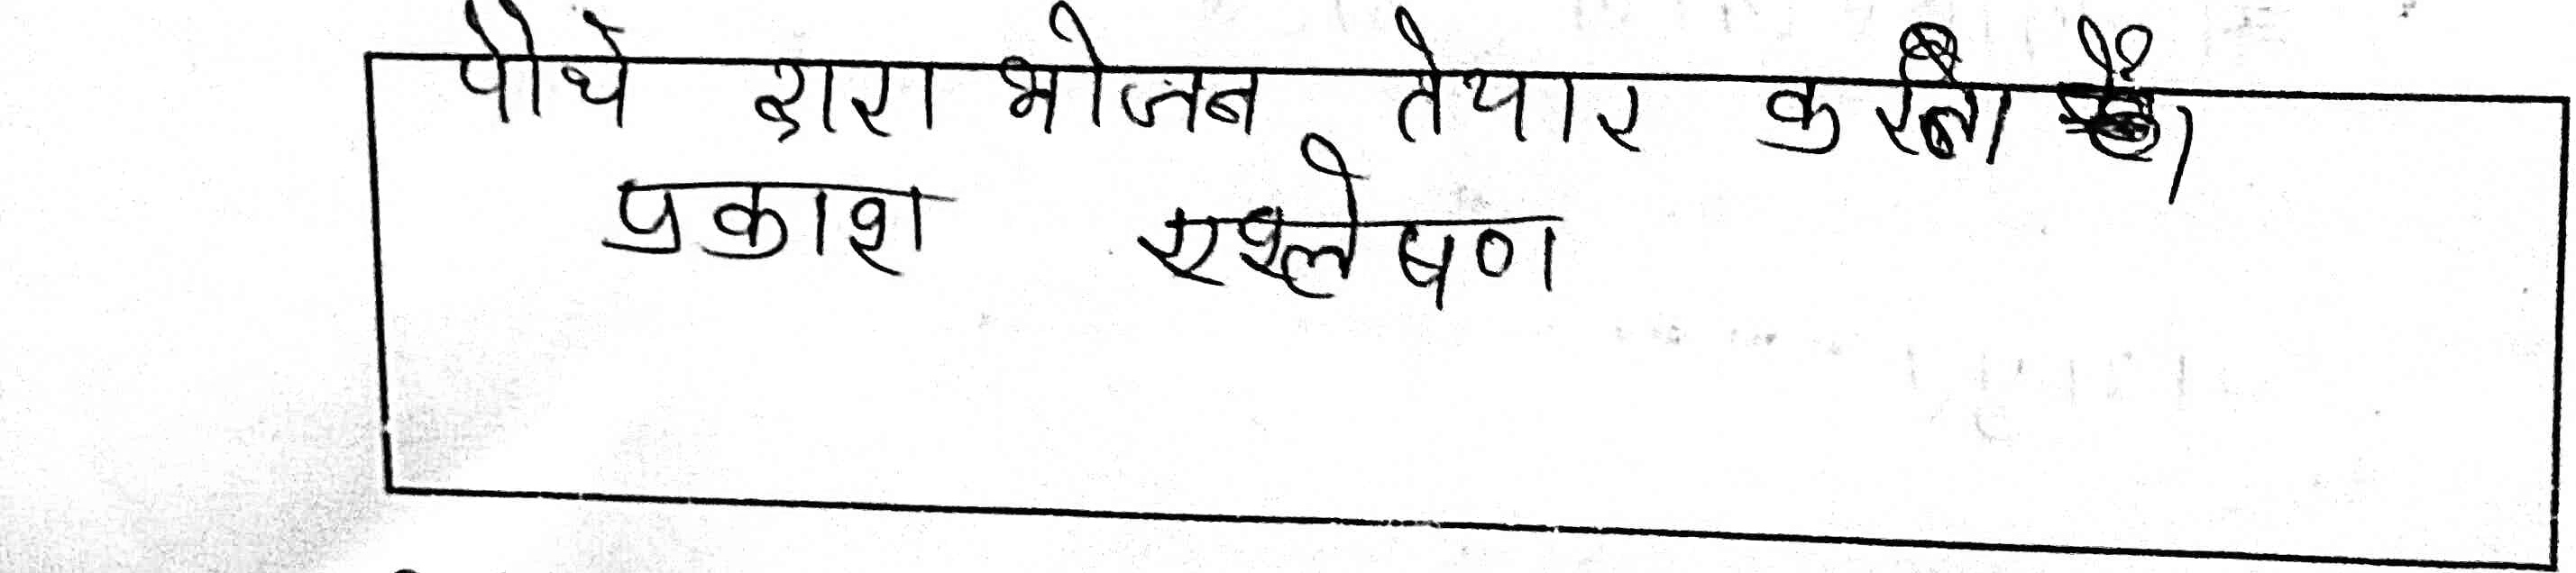 पौधे द्वारा भोजन तैयार करना है।
प्रकाश संश्लेषण